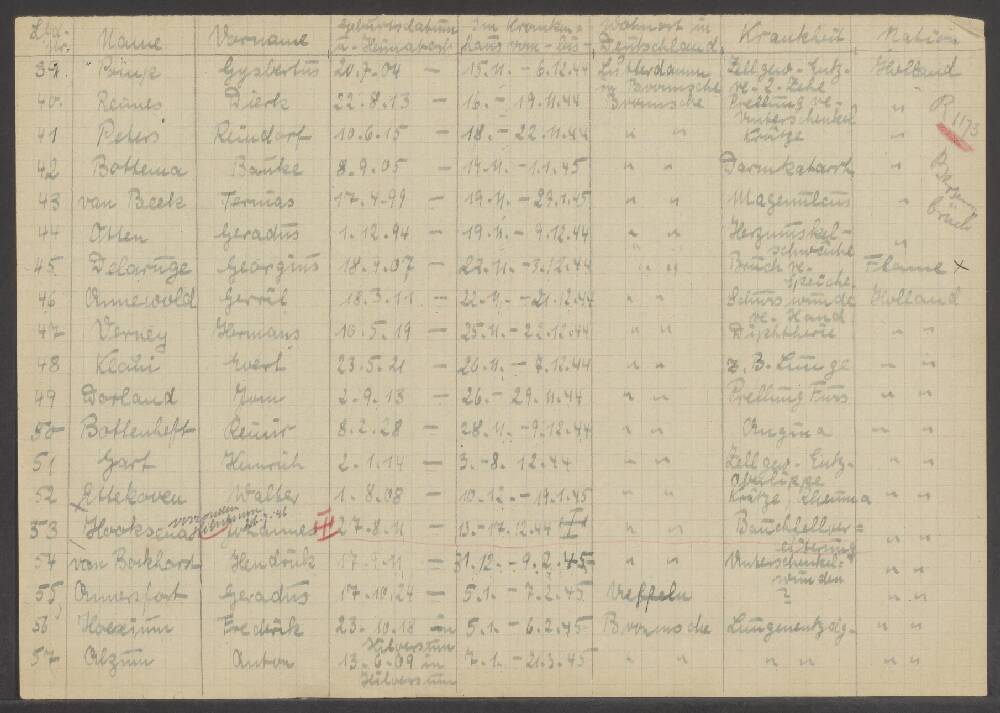 Lfd. Nr. Name Vorname Geburtsdatum u. Heimatort Im Krankenhaus vom - bis - Wohnort in Deutschland Krankheit Nation
39. Gysbertus 20.7.04 — 15.11. - 6.12.44 Lutterdamm Zellgew.-Entz. Holland
b/ Bramsche re. 2. Zehe
40. Reunes Dierk 22.8.13 — 16. - 19.11.44 Bramsche Prellung re. " "
Unterschenkel
R 1173
41 Peters Reindorf 10.6.15 — 18. - 22.11.44 " " Krätze "
42 Bottema Bauke 8.9.05 — - 1.1.45 " " Darmkatarrh "
Bersenbrück
43 van Beek 17.4.99 — 19.11. - 29.1.45 " " Magenulcus "
44 Otten Geradus 1.12.94 — 19.11. - 9.12.44 " " Herzmuskel- "
schwäche
45 Delaruge Georgius 18.9.07 — 22.11. - 3.12.44 " " Bruch re. Flame x
Speiche
46 Annewold Gerrit 18.3.11 — 22.11. - 21.12.44 " " Schusswunde Holland
re. Hand
47 Verney Hermans 10.5.19 — 25.11. - 22.12.44 " " Diphtherie " "
48 Evert 23.5.21 — 26.11. - 7.12.44 " " z. B. Lunge " "
49 Dorland 2.9.13 — 26. - 29.11.44 " " Prellung Fuss " "
50 Bottenheft 8.2.28 — 28.11. - 9.12.44 " " Angina " "
51 Garf Heinrich 2.1.14 — 3. - 8.12.44 " " Zellgew.-Entz. " "
Oberlippe
52 Ettekoven Walter 1.8.08 — 10.12. - 19.1.45 " " Krätze, Rheuma " "
verzogen
Hilversum
53 Hooksena Johannes III 27.8.11 — 13. - 17.12.44 " " Bauchfellver= " "
eiterung
54 van Bockhorst Hendrik 17.9.11 — 31.12. - 9.2.45 " " Unterschenkel= " "
wunden
55 Amersfort Geradus 17.10.24 — 5.1. - 7.2.45 Ueffeln ? " "
56 Fredrik 23.10.18 in 5.1. - 6.2.45 Bramsche Lungenentzdg. " "
Hilversum
57 Alzum Anton 13.6.09 in 7.1. - 21.3.45 " " " " " "
Hilversum